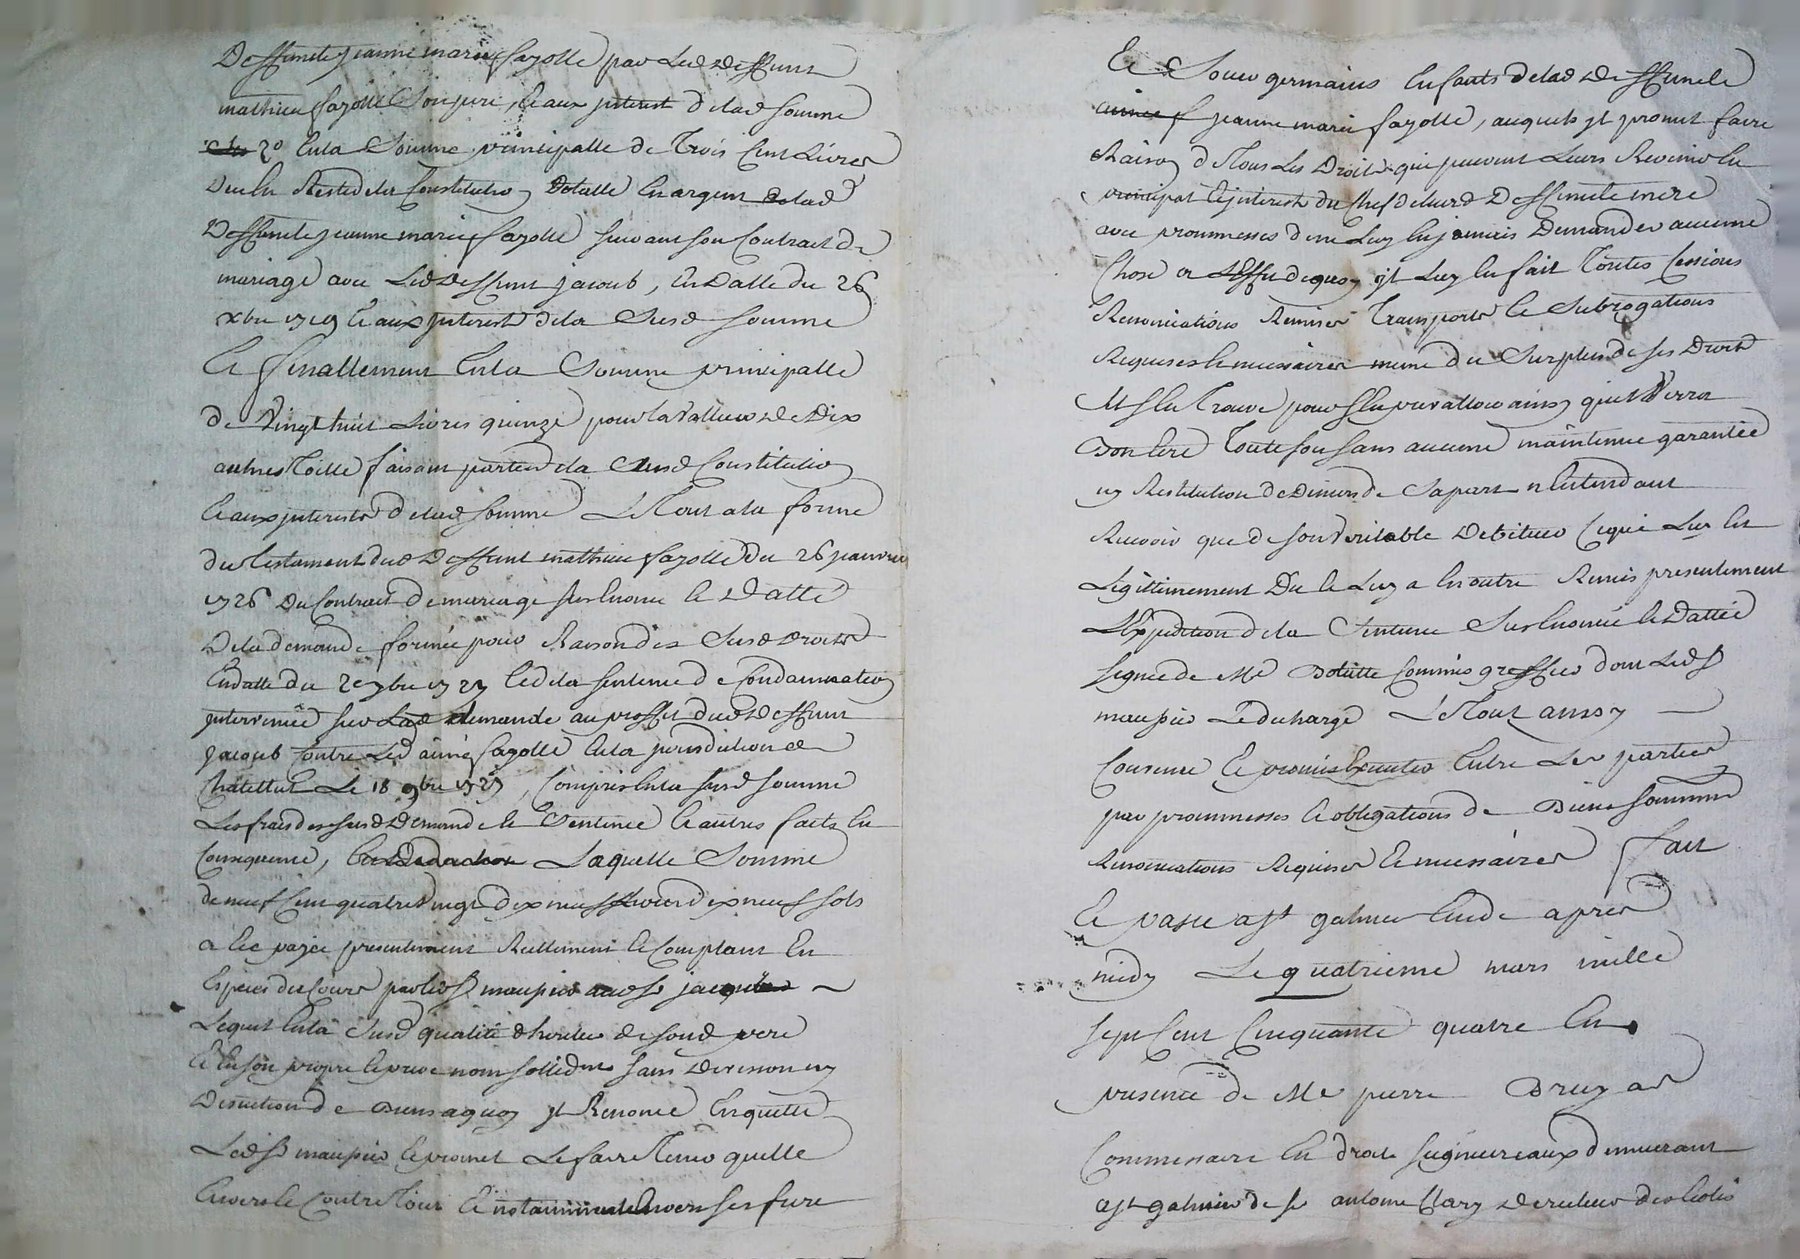 Deffunte jeanne marie fayolle par Led Deffunt
mathieu fayolle Son pere, & aux jnterest de lad somme
2º Enla Somme principalle de Trois Cent Livres
Deub Reste dela Constitution Dotalle En argent delad
Deffunte jeanne marie fayolle suivant son Contrait de
mariage avec Led Deffunt jacoub, En Datte du 26
xbre 1719 & aux jnterest dela Susd Somme
Et finallement Enla Somme principalle
de Vingt huit Livres quinze pour la Valleur de Dix
aulnes Toille faisant partie dela Susd Constitution
& aux jnterests delad Somme Le Tout a la forme
du Testament dud Deffunt mathieu fayolle du 26 janvier
1726 Du Contrait de mariage Susénoncé & Datté
Dela demande formée pour Raison des Susd Droits
En datte du 2e 7bre 1727 & de la Sentence de Condamnation
jntervenue sur Lad demande au proffit dud Deffunt
jacoub Contre Led aimé fayolle Enla jurisdiction de
Châtellus Le 18 9bre 1727, Compris Enla susd Somme
Les frais des susd Demande & Sentence & autres faits En
Consequence, Laquelle Somme
de neuf Cent quatre Vingt dix neuf Livres dix neuf sols
a été payée presentement Reellement & Comptant En
Espéces du Cours par led Sr maupier aud Sr jacoub
Lequel Enla Susd qualité d'heritier de sond pere
& En son propre & privé nom sollidre sans Division ny
Discution de Biens a quoy jl Renonce En quitte
Led Sr maupier & promet Le faire Tenir quitte
Envers & Contre Tous & notamment Envers ses frere
Et Soeur germains Enfants delad Deffunte
jeanne marie fayolle, auquels jl promet faire
Raison de Tous Les Droits qui peuvent Leurs Revenir En
principal & jnterest du Chef de leurd Deffunte mere
avec prommesses de ne Luy En jamais Demander aucune
Chose a L'Effet de quoy jl Luy En fait Toutes Cessions
Renonciations Remises Transports & Subrogations
Requises & necessaires même du Surplus de ses Droits
s'il s'en Trouve pour s'en prevalloir ainsy qu'il Verra
Bon être Toutefois sans aucune maintenue garantie
ny Restitution de Deniers de Sa part n'Entendant
Recevoir que de son Veritable Debiteur Ce qui Luy Est
Legittimement Dû & Luy a En outre Remis presentement
L'Expedition dela Sentence Susénoncée & Dattée
Signée de Me Commis greffier dont Led Sr
maupier Le decharge Le Tout ainsy
Convenu & promis Executer Entre Les parties
par prommesses & obligations de Biens Soummissions
Renonciations Requises & necessaires fait
& passé a St galmier Etude apres
midy Le quatrieme mars mille
sept Cent Cinquante quatre En
presence de Me pierre Bruyas
Commissaire En droits seigneureaux demeurant
a St galmier & de Sr antoine Clary Directeur des Ecoles